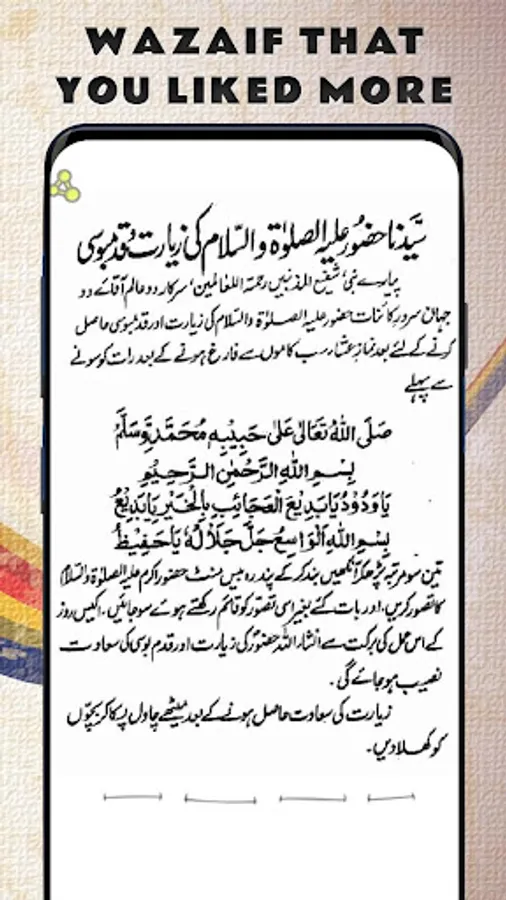 WAZAIF THAT
YOU LIKED MORE
سیّدنا حضور علیہ الصلوٰۃ والسّلام کی زیارت و قدمبوسی
پیارے نبی، شفیع المذنبیں رحمۃ اللعالمین، سرکار دو عالم آقائے دو
جہاں سرور کائنات حضور علیہ الصلوٰۃ والسلام کی زیارت اور قدمبوسی حاصل
کرنے کے لئے بعد نماز عشاء سب کاموں سے فارغ ہونے کے بعد رات کو سونے
سے پہلے
صَلَى اللّٰهُ تَعَالٰى عَلٰى حَبِيْبِهٖ مُحَمَّدٍ وَّسَلَّمْ
بِسْمِ اللّٰهِ الرَّحْمٰنِ الرَّحِيْمِ
يَا وَدُوْدُ يَا بَدِيْعَ الْعَجَائِبِ بِالْخَيْرِ يَا بَدِيْعُ
بِسْمِ اللّٰهِ الْوَاسِعُ جَلَّ جَلَالُهٗ يَا حَفِيْظُ
تین سو مرتبہ پڑھکر آنکھیں بند کر کے پندرہ بیس منٹ حضور اکرم علیہ الصلوٰۃ والسّلام
کا تصور کریں، اور بات کئے بغیر اسی تصور کو قائم رکھتے ہوئے سو جائیں، اکیس روز
کے اس عمل کی برکت سے انشاء اللہ حضورؐ کی زیارت اور قدم بوسی کی سعادت
نصیب ہو جائے گی۔
زیارت کی سعادت حاصل ہونے کے بعد میٹھے چاول پکا کر بچّوں
کو کھلا دیں۔